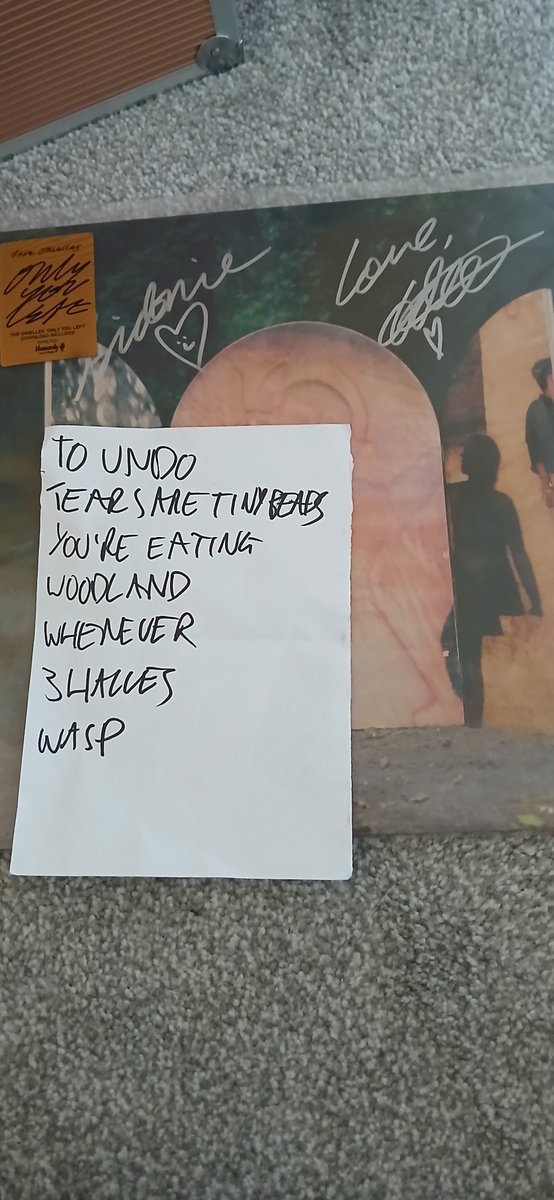 The Orielles
Only
you
left
THE ORIELLES 'ONLY YOU LEFT'
DOWNLOAD INCLUDED
Heavenly
Sidonie
Love,
TO UNDO
TEARS ARE TINY BEADS
YOU'RE EATING
WOODLAND
WHENEVER
3 HALVES
WASP